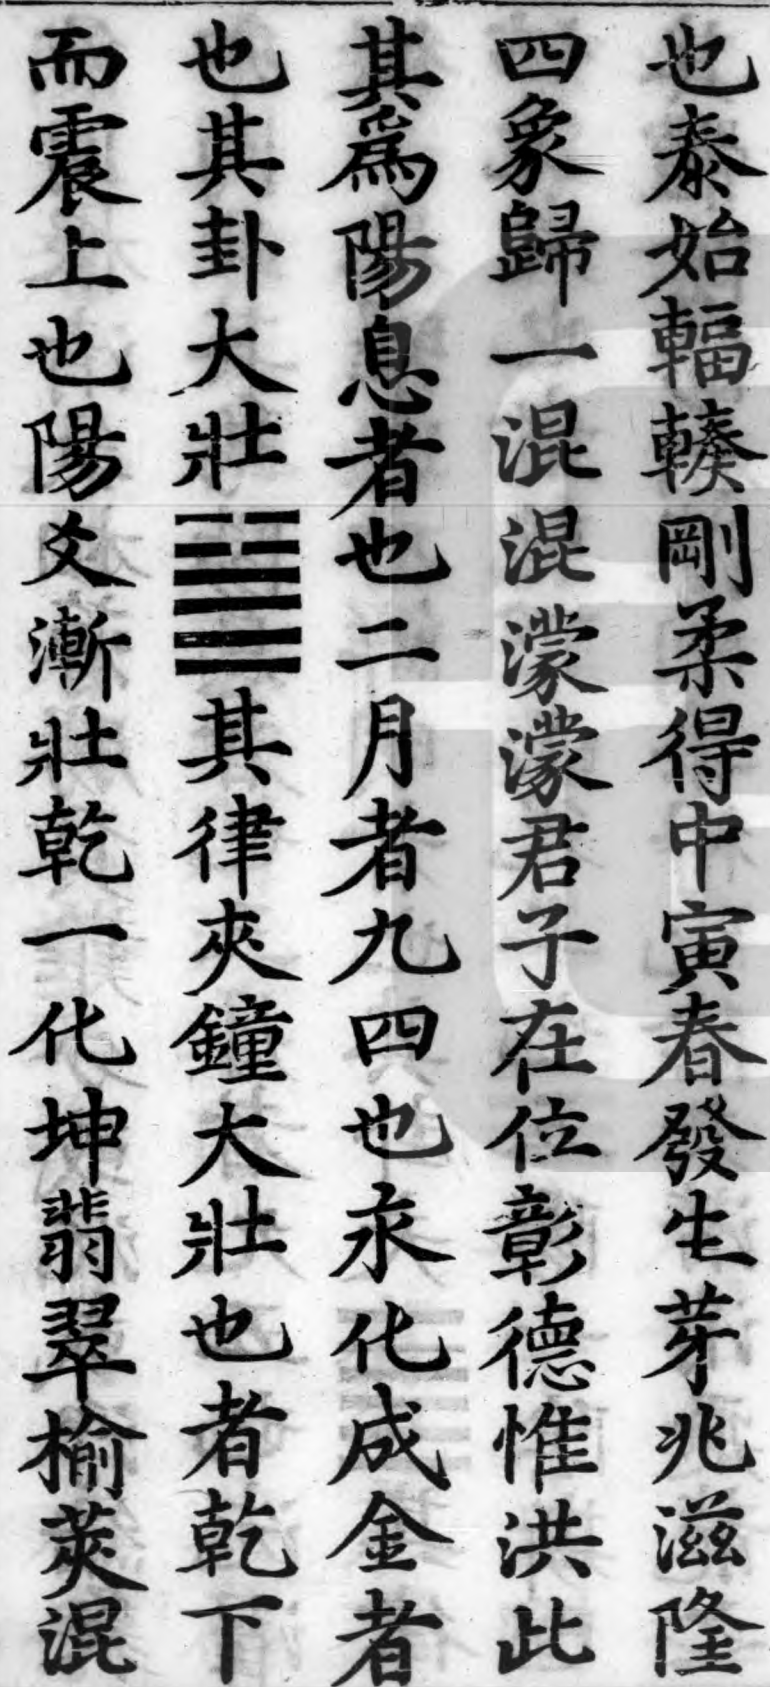 也泰始輻輳剛柔得中寅春發生芽兆滋隆
四象歸一混混濛濛君子在位彰德惟洪此
其爲陽息者也二月者九四也汞化成金者
也其卦大壯䷡其律夾鐘大壯也者乾下
而震上也陽爻漸壯乾一化坤翡翠榆莢混